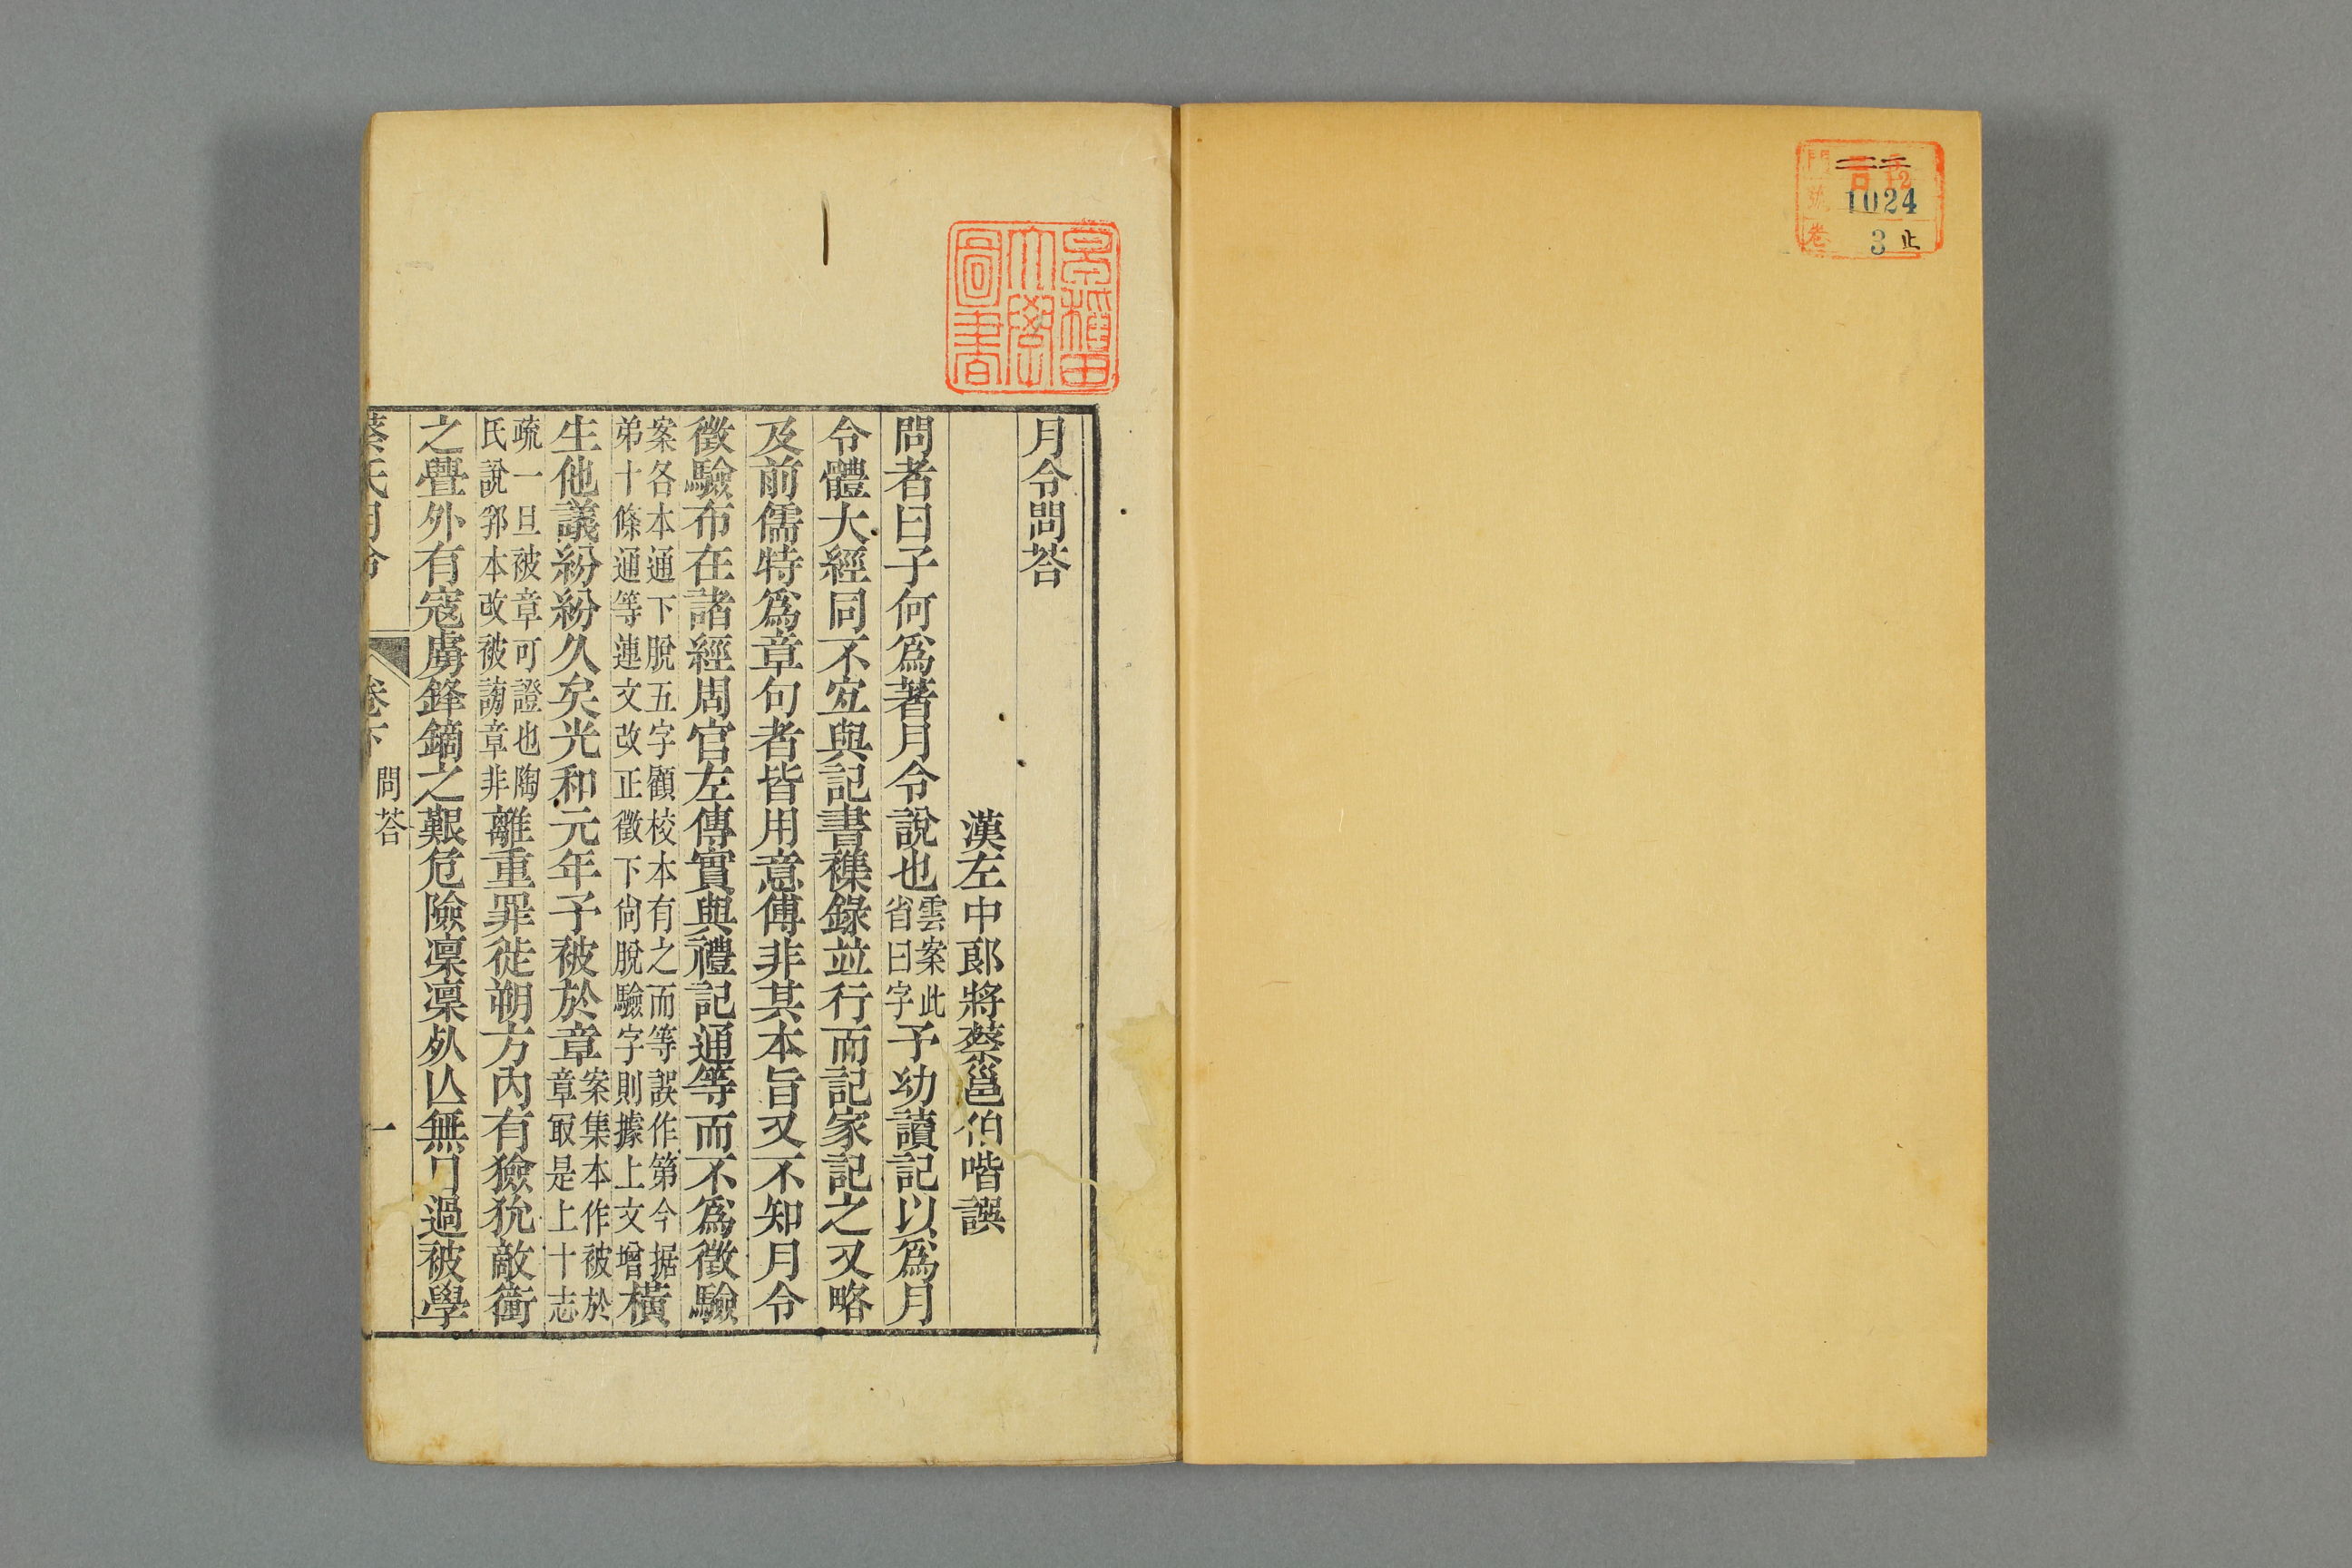 門 口 12
號 1024
卷 3 止
早稲田大學圖書
月令問荅
漢左中郎將蔡邕伯喈譔
問者曰子何爲著月令說也雲案此省曰字予幼讀記以爲月
令體大經同不宐與記書襍錄竝行而記家記之又略
及前儒特爲章句者皆用意傅非其本旨又不知月令
徵驗布在諸經周官左傳實與禮記通等而不爲徵驗
案各本通下脫五字顧校本有之而等誤作第今据弟十條通等連文改正徵下尙脫驗字則據上文增橫
生他議紛紛久矣光和元年予被於章案集本作被於章㝡是上十志
疏一旦被章可證也陶氏說郛本改被謗章非離重罪徙朔方內有獫狁敵衝
之舋外有寇虜鋒鏑之艱危險凜凜死亾無日過被學
蔡氏月令 卷下 問荅 一